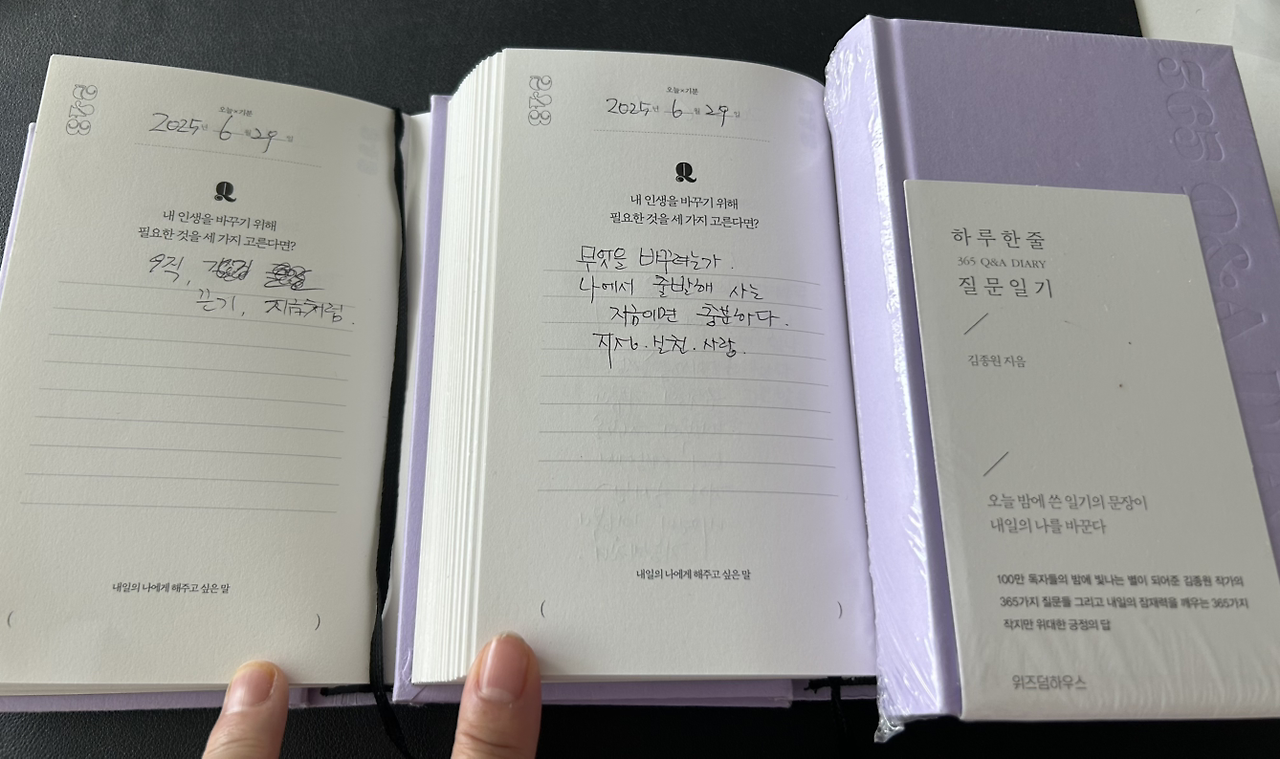 243
오늘×기분
2025년 6월 29일
Q
내 인생을 바꾸기 위해
필요한 것을 세 가지 고른다면?
끈기, 지금처럼.
내일의 나에게 해주고 싶은 말
( )
243
오늘×기분
2025년 6월 29일
Q
내 인생을 바꾸기 위해
필요한 것을 세 가지 고른다면?
무엇을 바꾸려는가.
나에서 출발해 사는
지금이면 충분하다.
지성. 실천. 사랑.
내일의 나에게 해주고 싶은 말
( )
365 Q&A
하루 한 줄
365 Q&A DIARY
질문 일기
김종원 지음
오늘 밤에 쓴 일기의 문장이
내일의 나를 바꾼다
100만 독자들의 밤에 빛나는 별이 되어준 김종원 작가의
365가지 질문들 그리고 내일의 잠재력을 깨우는 365가지
작지만 위대한 긍정의 답
위즈덤하우스